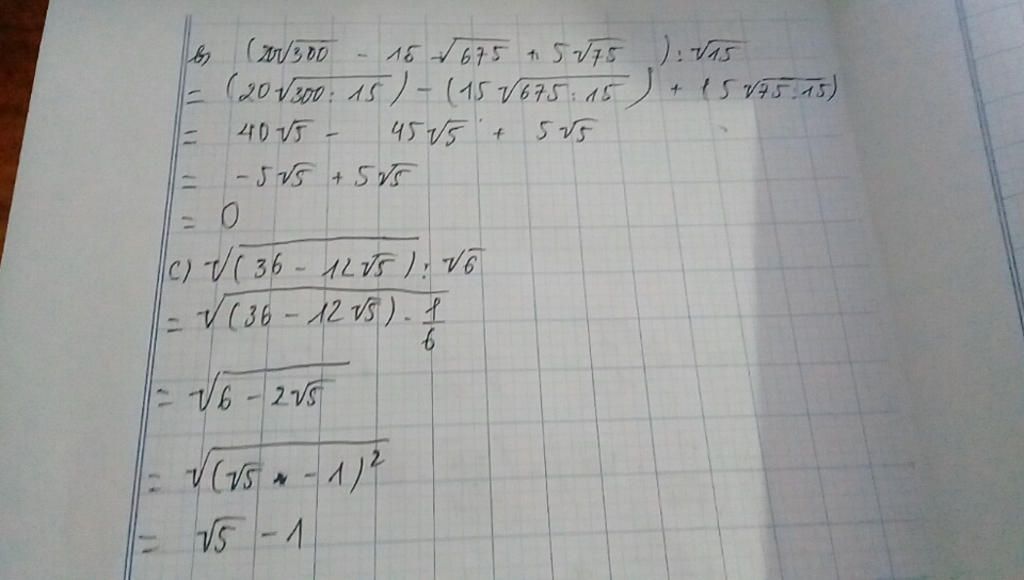 b) (20√300 - 15 √675 + 5√75 ) : √15
= (20√300 : 15) - (15√675 : 15) + (5√75 : 15)
= 40√5 - 45√5 + 5√5
= -5√5 + 5√5
= 0
c) √(36 - 12√5) : √6
= √(36 - 12√5) · 1/6
= √6 - 2√5
= √(√5 - 1)²
= √5 - 1